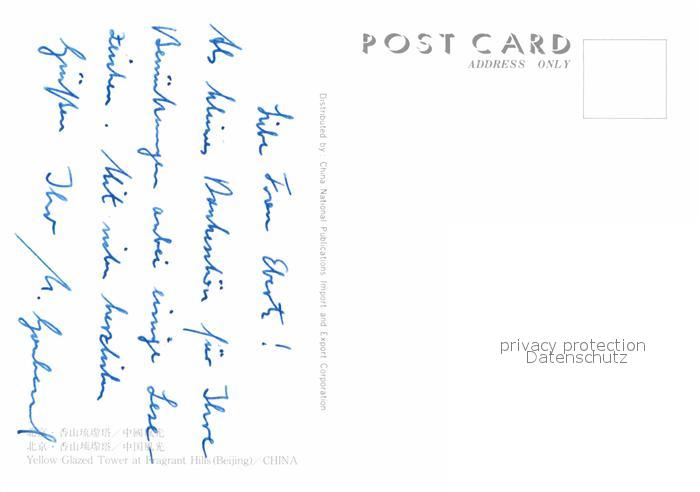 POST CARD
ADDRESS ONLY
Liebe Frau Ebertz!
Als kleines Dankeschön für Ihre
Bemühungen anbei einige Lese-
zeichen. Mit vielen herzlichen
Grüßen Ihr
Distributed by China National Publications Import and Export Corporation
privacy protection
Datenschutz
北京·香山琉璃塔／中國風光
北京·香山琉璃塔／中国风光
Yellow Glazed Tower at Fragrant Hills (Beijing)／CHINA